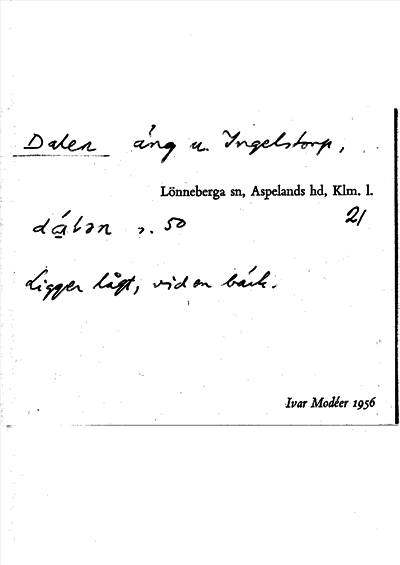 Dalen äng u. Ingelstorp,
Lönneberga sn, Aspelands hd, Klm. l.
21
dálən s. 50
Ligger lågt, vid en bäck.
Ivar Modéer 1956